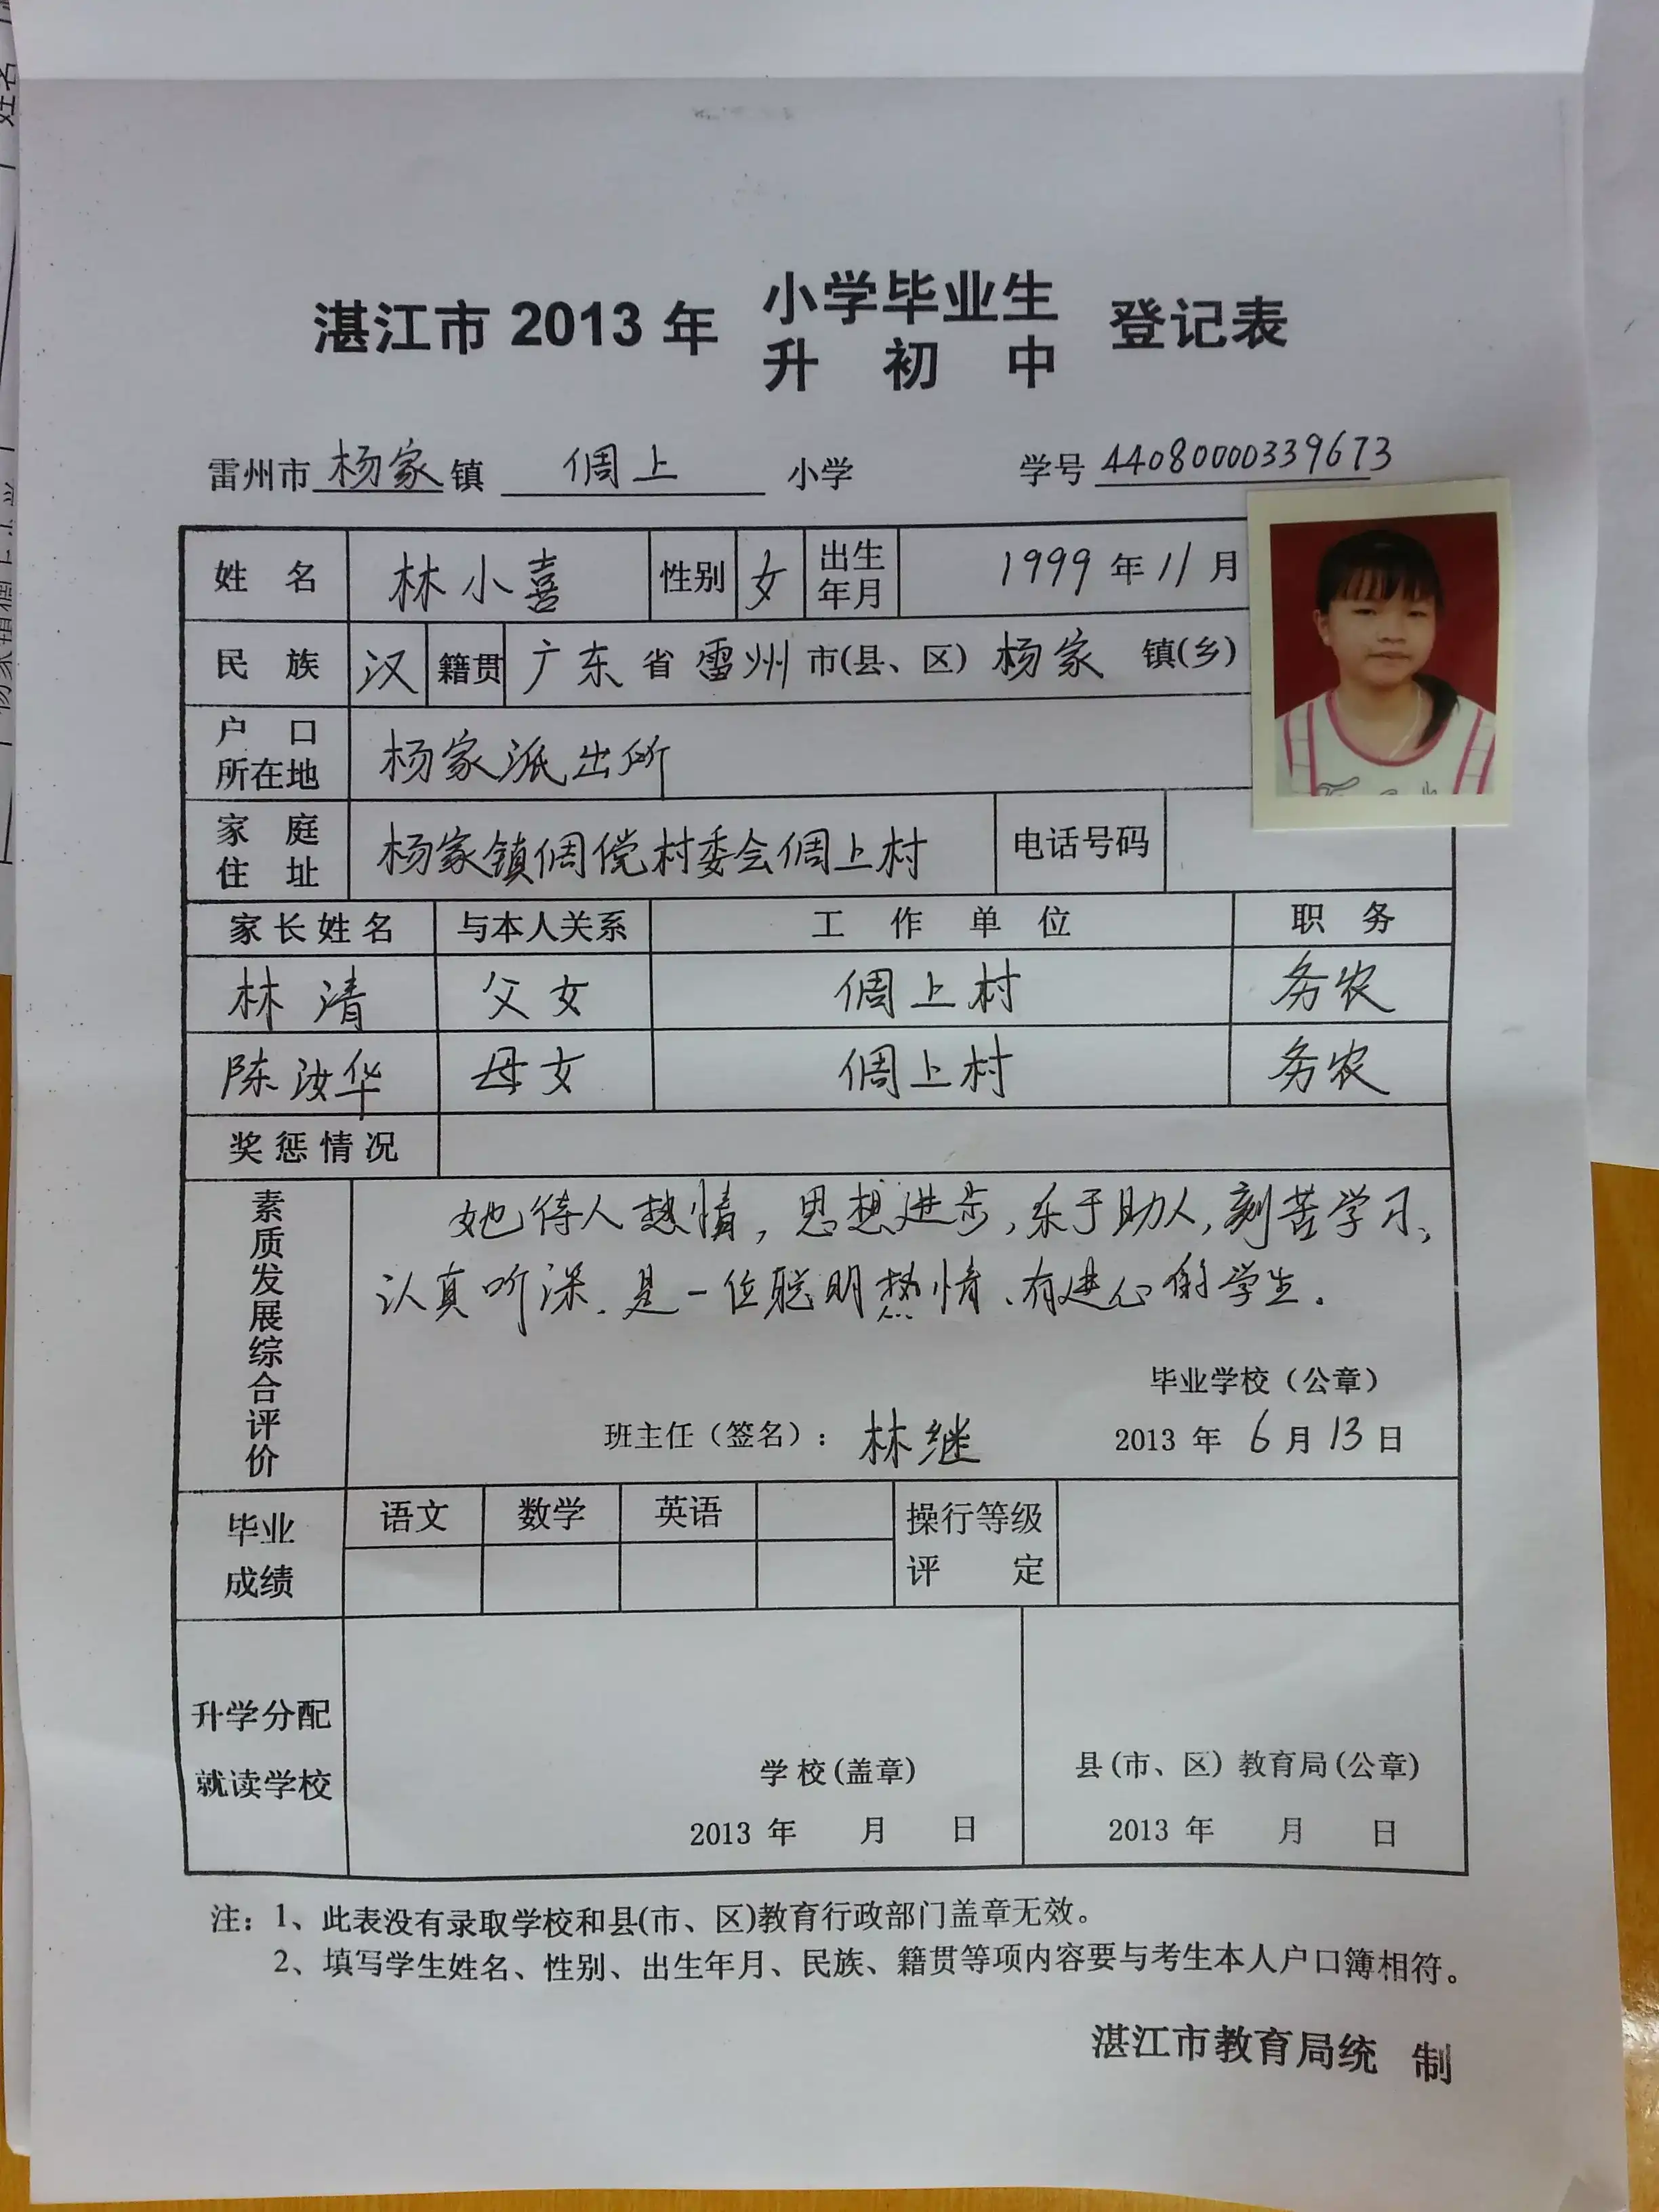 湛江市 2013 年 小学毕业生 登记表
升 初 中
雷州市 杨家 镇 倜上 小学 学号 44080000339673
姓 名 林小喜 性别 女 出生年月 1999 年 11 月
民 族 汉 籍贯 广东 省 雷州 市(县、区) 杨家 镇(乡)
户 口
所在地 杨家派出所
家 庭
住 址 杨家镇倜傥村委会倜上村 电话号码
家长姓名 与本人关系 工 作 单 位 职 务
林清 父女 倜上村 务农
陈汝华 母女 倜上村 务农
奖惩情况
素质发展综合评价
她待人热情，思想进步，乐于助人，刻苦学习、
认真听课、是一位聪明热情、有进心的学生.
毕业学校（公章）
班主任（签名）： 林继 2013 年 6 月 13 日
毕业 语文 数学 英语 操行等级
成绩 评 定
升学分配
就读学校
学校(盖章) 县(市、区) 教育局(公章)
2013 年 月 日 2013 年 月 日
注：1、此表没有录取学校和县(市、区)教育行政部门盖章无效。
2、填写学生姓名、性别、出生年月、民族、籍贯等项内容要与考生本人户口簿相符。
湛江市教育局统 制